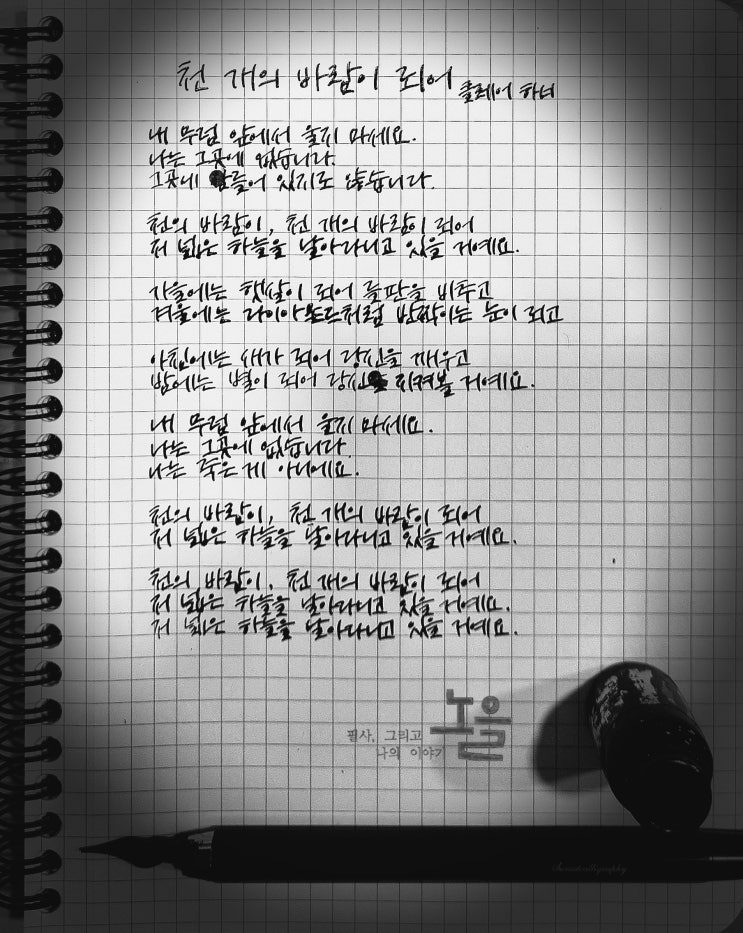 천 개의 바람이 되어 클레어 하너
내 무덤 앞에서 울지 마세요.
나는 그곳에 없습니다.
그곳에 잠들어 있지도 않습니다.
천의 바람이, 천 개의 바람이 되어
저 넓은 하늘을 날아다니고 있을 거예요.
가을에는 햇살이 되어 들판을 비추고
겨울에는 다이아몬드처럼 반짝이는 눈이 되고
아침에는 새가 되어 당신을 깨우고
밤에는 별이 되어 당신을 지켜볼 거예요.
내 무덤 앞에서 울지 마세요.
나는 그곳에 없습니다.
나는 죽은 게 아니에요.
천의 바람이, 천 개의 바람이 되어
저 넓은 하늘을 날아다니고 있을 거예요.
천의 바람이, 천 개의 바람이 되어
저 넓은 하늘을 날아다니고 있을 거예요.
저 넓은 하늘을 날아다니고 있을 거예요.
필사, 그리고
나의 이야기
노을